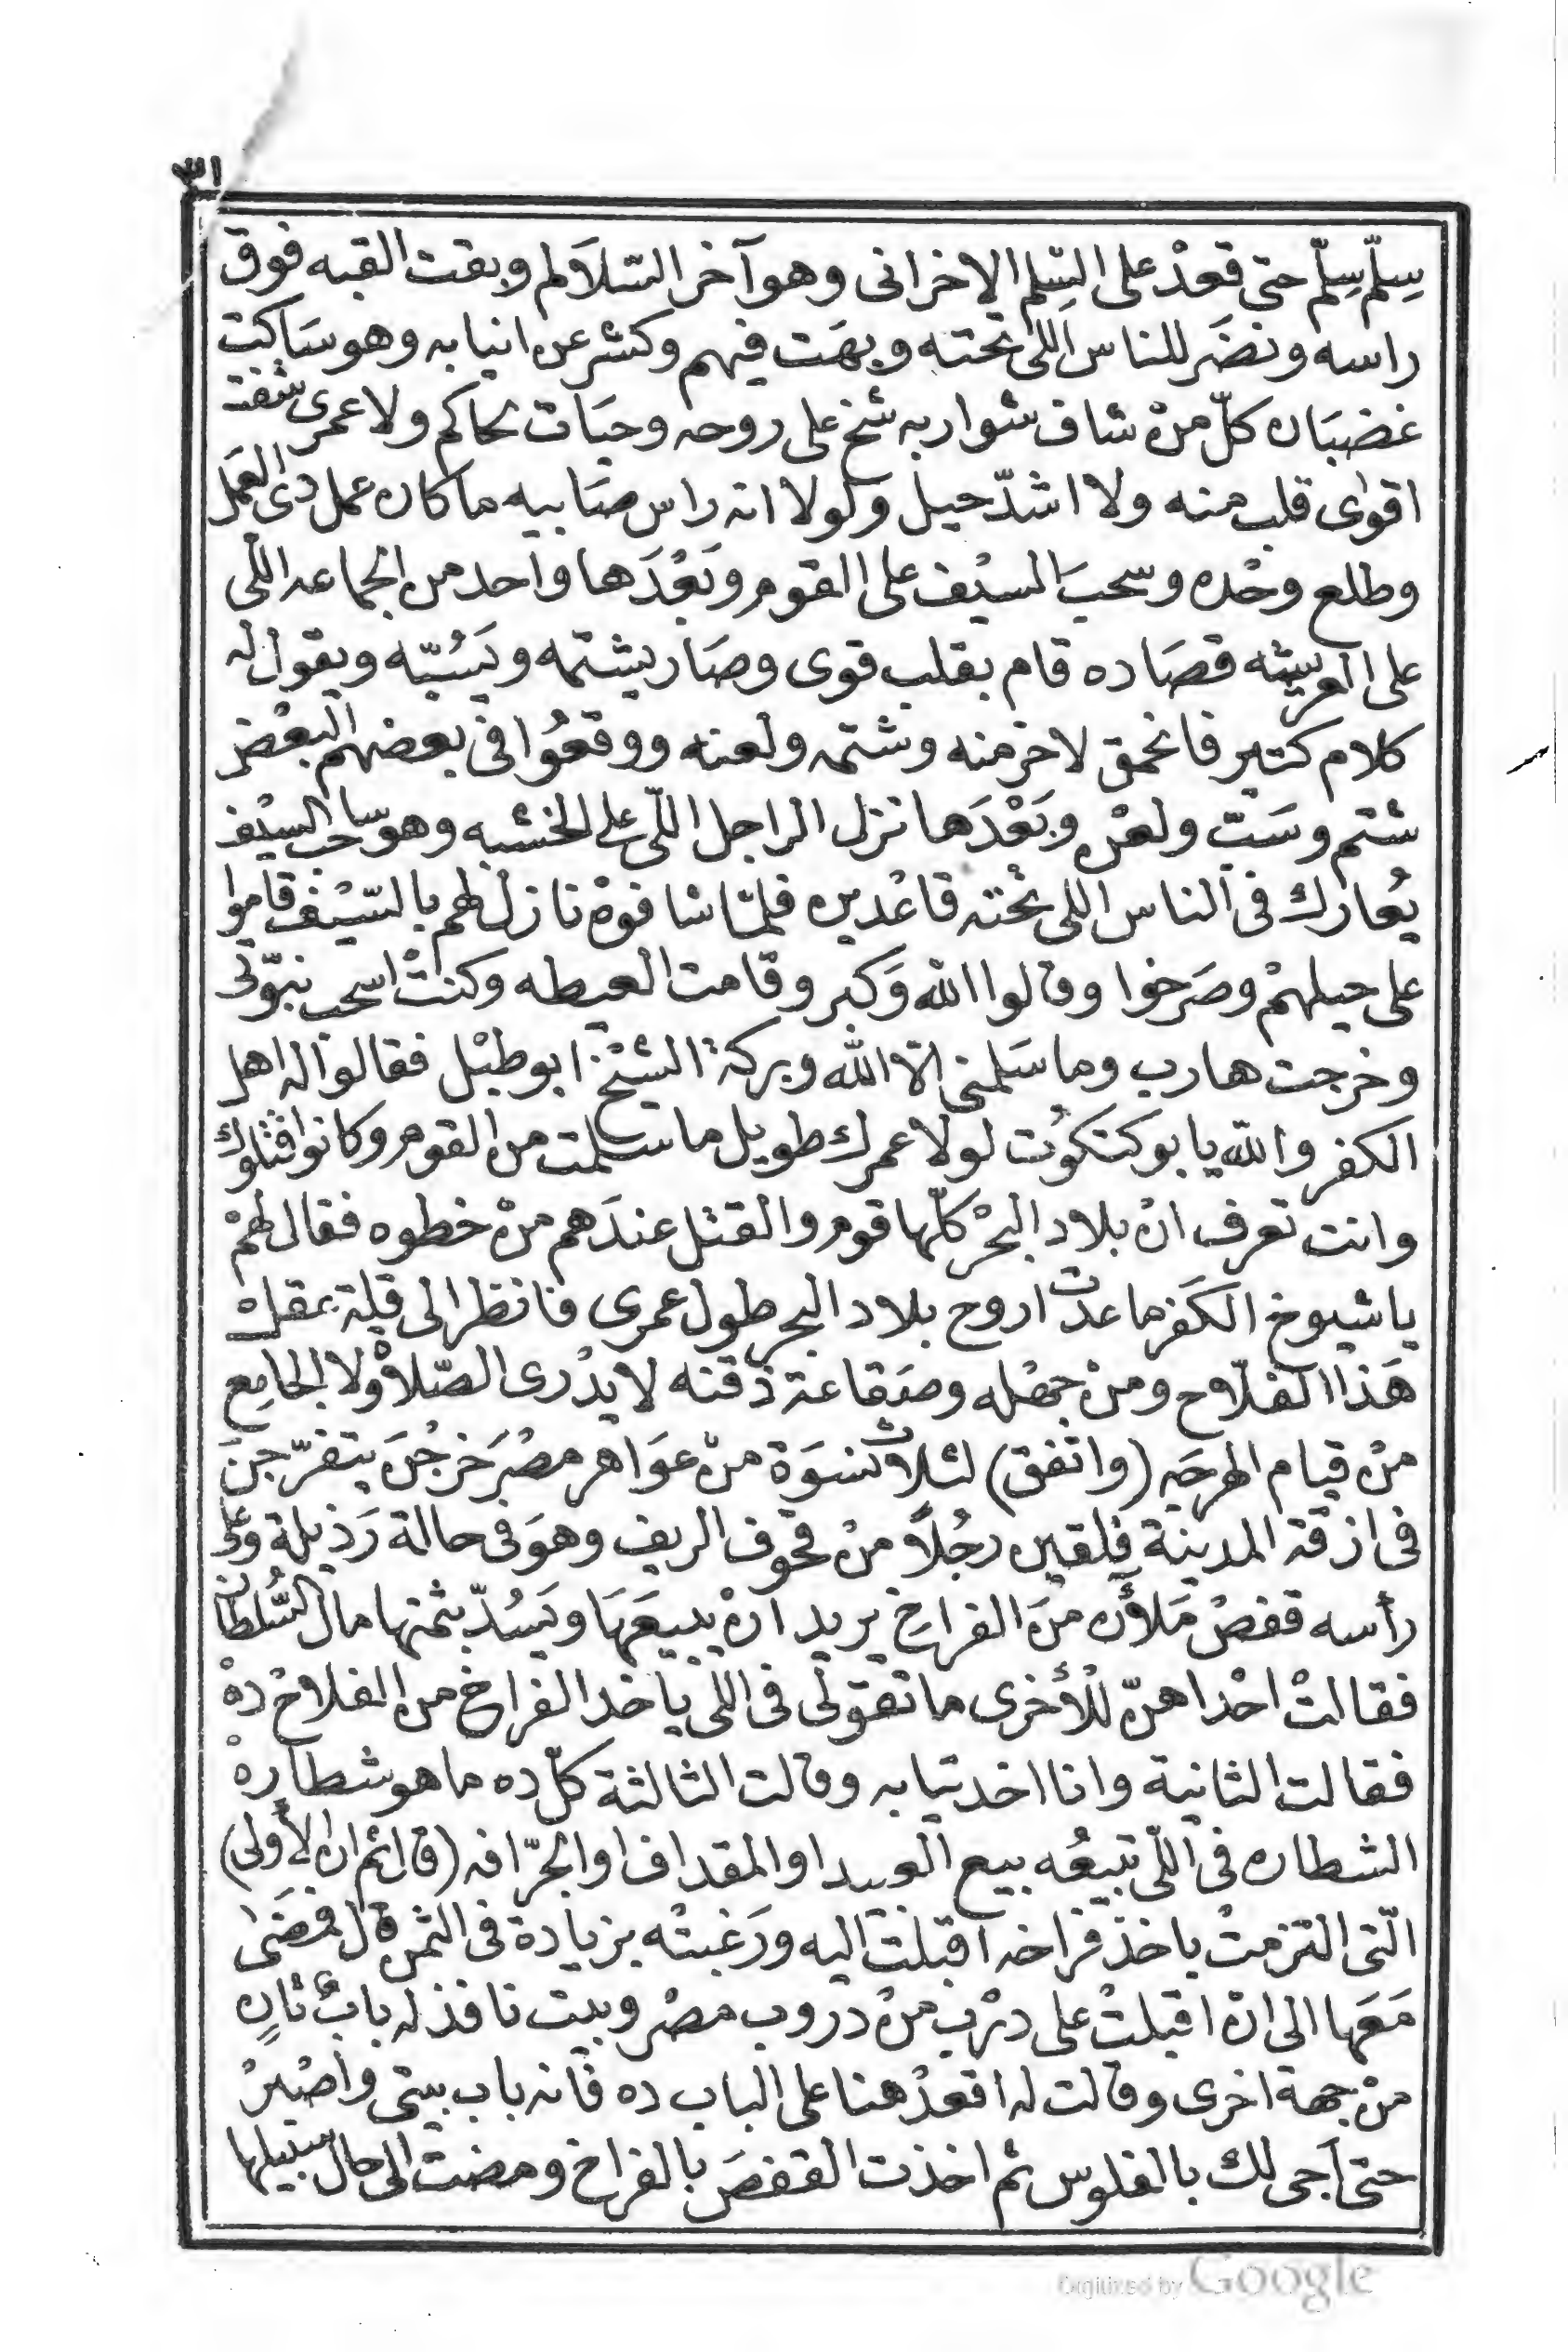 ٣١
سِلّم سِلّم حتى قعدْ على السِلم الاخرانى وهو آخر السّلاَلم وبقت القبه فوق
راسه ونضَر للناس اللى تحته وبهَت فيهم وكشر عن انيابه وهو سَاكت
غضبَان كلّ منْ شاف شواربه شخ على روحه وحيَات لحاكم ولا عمرى شفت
اقوى قلب منه ولا اشدّ حيل ولولا انه راس صَابيه ما كان عمل دى العَمل
وطلع وحْده وسحبَ السيْف على القوم وبَعْدَها واحد من الجماعه اللّى
على العريشه قصَاده قام بقلب قوى وصَار يشتمه ويَسُبّه ويقول له
كلام كتير فانحمق لاخر منه وشتمه ولعنه ووقعُوا فى بعضهم البعْض
شتم وسَبّ ولعنْ وبَعْدَها نزل الراجل اللّى على الخشبه وهو ساحب السيْف
يُعارك فى الناس اللى تحْته قاعْدين فلمّا شافوهْ نازل لهم بالسّيْف قاموا
على حيلهمْ وصَرخوا وقالوا الله وَكبر وقامت العيطه وكنتْ اسحب نبّوتى
وخرجت هارب وما سَلمنى الاّ الله وبركة الشيْخ ابو طبْل فقالوا له اهل
الكفر والله يا بو كنكوُت لولا عمرك طويل ما سلمت من القوم وكانوا قتلوك
وانت تعرف انْ بلاد البحْر كلّها قوم والقتل عندَهم منْ خطوه فقال لهمْ
يا شيوخ الكَفر ما عدت اروح بلاد البحر طول عمرى فانظر الى قلة عقل
هَذا الفلاّح ومنْ جهْله وصَقاعة ذقنه لا يدْرى الصّلاهْ ولا الجامِع
منْ قيام الهرجَه (واتفق) لثلاث نسوَة منْ عوَاهر مصْرَ خرجْنَ يتفرّجنَ
فى ازقة المدينة فلقين رجُلاً منْ قحوف الريف وهوَ فى حالة رَذيلة وعلى
رأسه قفصْ مَلأن منَ الفراخ يريد انْ يبيعَهَا ويَسُدّ بثمنها مال السُّلطان
فقالتْ احْداهنّ للأُخرى ما تقوّلى فى اللّى ياخد الفراخ من الفلاحْ دهْ
فقالت الثانية وانا اخد تيابه وقالت الثالثة كلّ ده ما هو شطارهْ
الشطاره فى اللّى تبيعُه بيع العبيد او المقداف او الجرّافه (قال ثم ان الأولى)
الّتى التزمتْ باخذ فراخه اقبلت اليه ورَغبتْه بزيادة فى الثمن قال فمضَى
مَعَها الى انْ اقبلتْ على درْب منْ دروب مصْر وبيت نافذ له بابٌ ثانٍ
منْ جهة اخرى وقالت له اقعدْ هنا على الباب ده فانه باب بيتى واصْبرْ
حتى آجى لك بالفلوس ثم اخذت القفصَ بالفراخ ومضت الى حال سبيلها
Digitized by Google